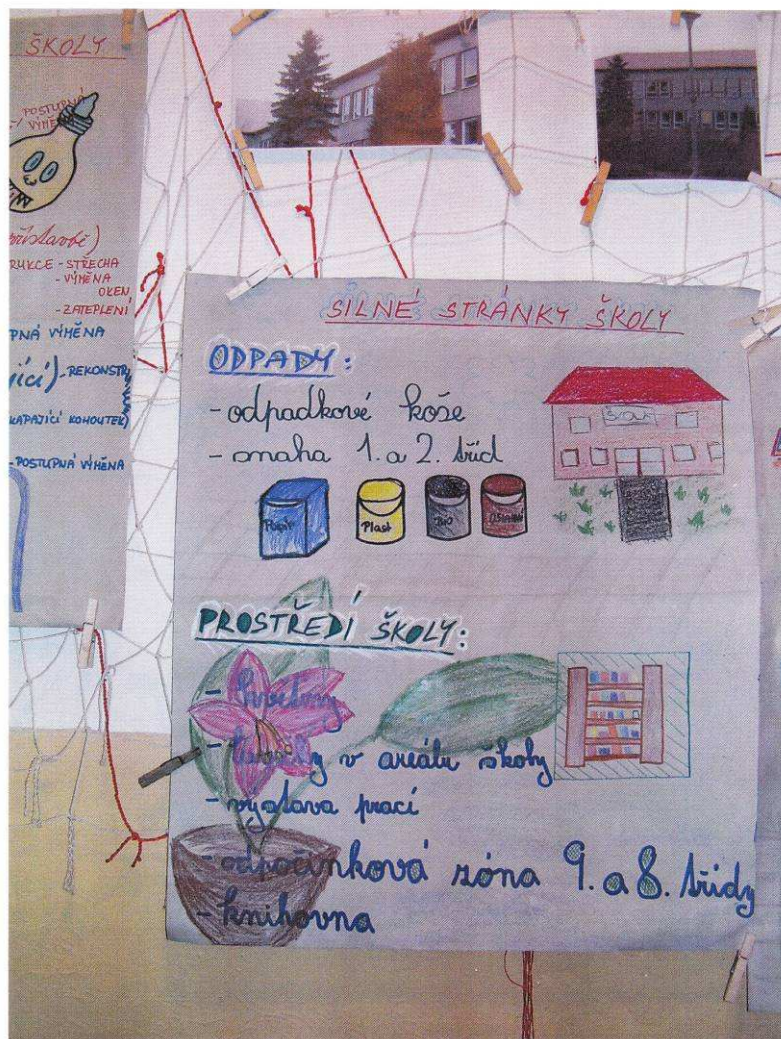 ŠKOLY
POSTUPNÁ
VÝMĚNA
přístavbě)
RUKCE - STŘECHA
- VÝMĚNA
OKEN
- ZATEPLENÍ
PNÁ VÝMĚNA
jící) - REKONSTR
KAPAJÍCÍ KOHOUTEK)
- POSTUPNÁ VÝMĚNA
SILNÉ STRÁNKY ŠKOLY
ODPADY:
- odpadkové koše
- snaha 1. a 2. tříd
ŠKOLA
Papír Plast BIO OSTATNÍ
PROSTŘEDÍ ŠKOLY:
- květiny
- v areálu školy
- výstava prací
- odpočinková zóna 9. a 8. třídy
- knihovna